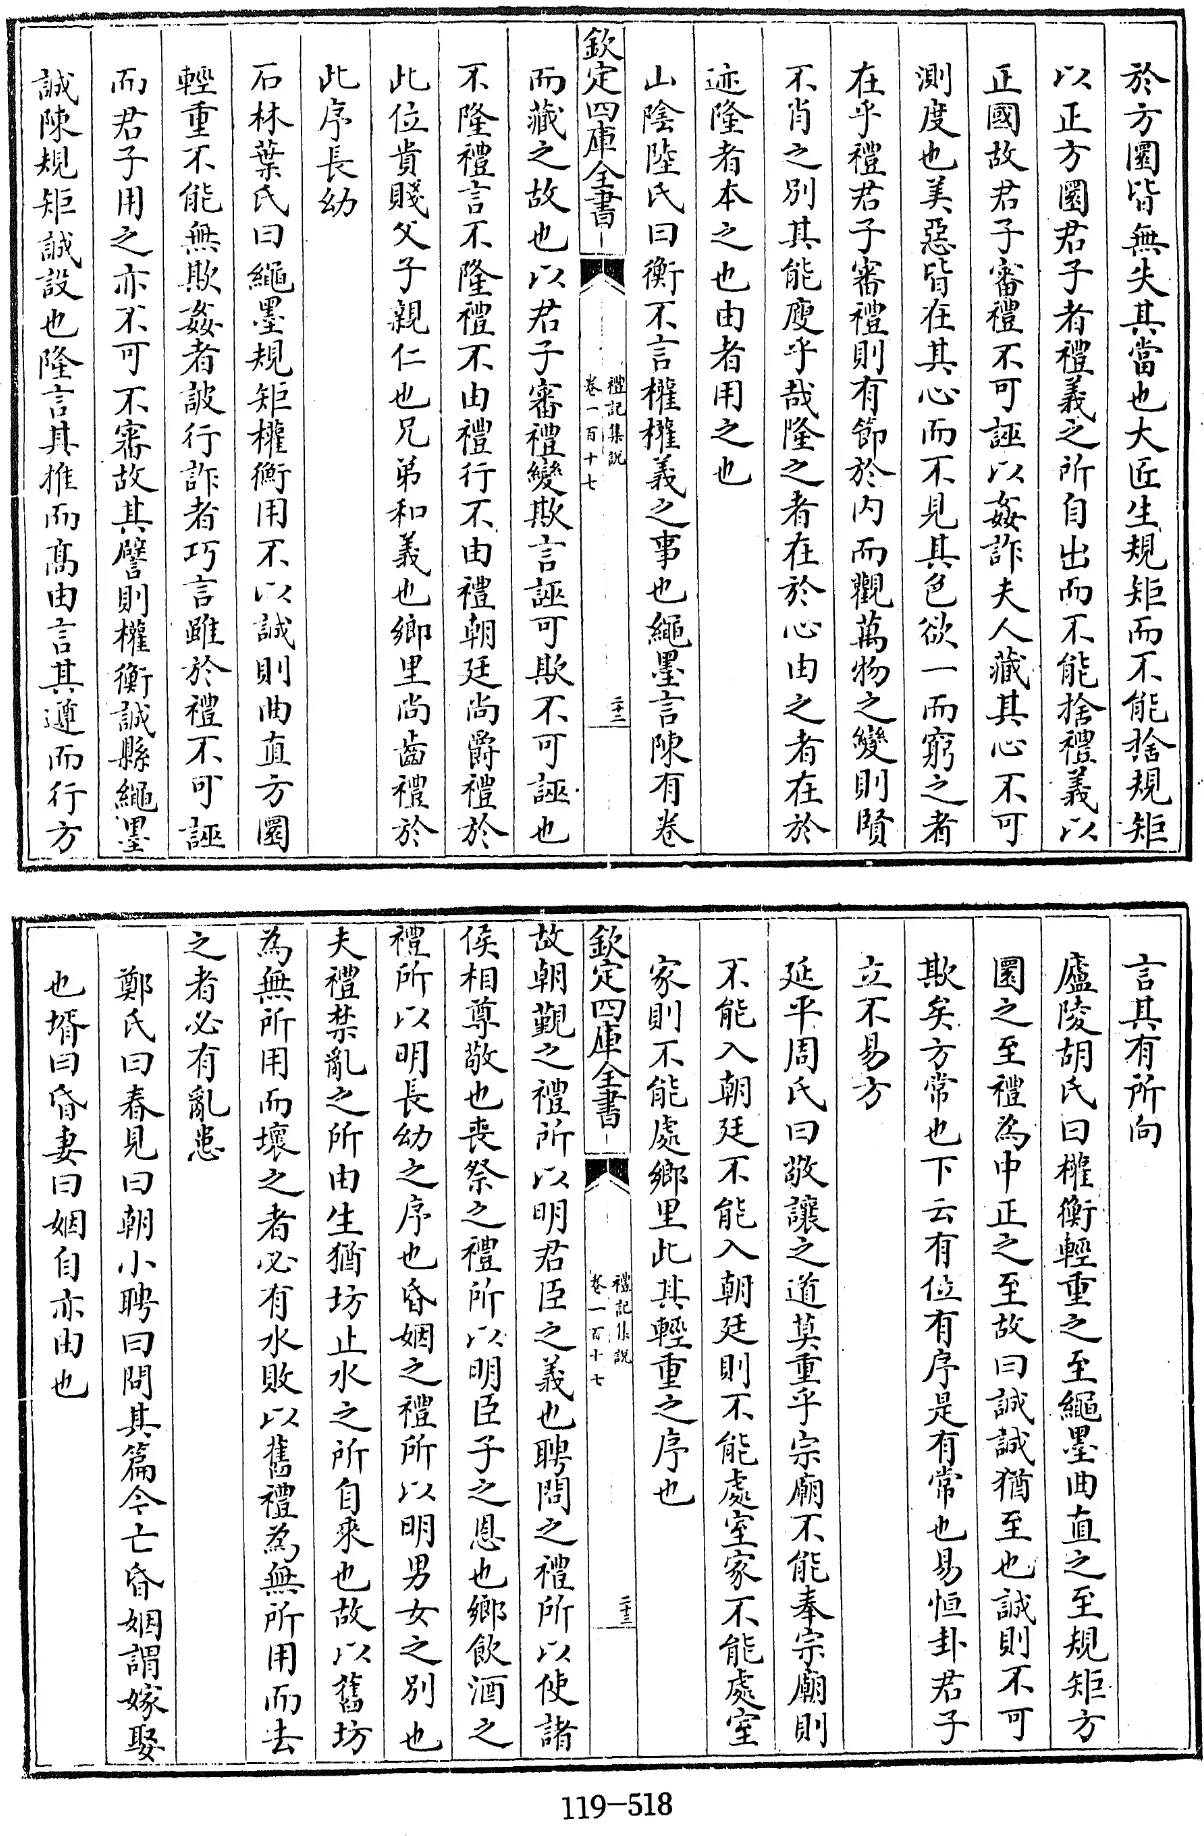 於方圜皆無失其當也大匠生規矩而不能捨規矩
以正方圜君子者禮義之所自出而不能捨禮義以
正國故君子審禮不可誣以姦詐夫人藏其心不可
測度也美惡皆在其心而不見其色欲一而窮之者
在乎禮君子審禮則有節於内而觀萬物之變則賢
不肖之別其能廋乎哉隆之者在於心由之者在於
迹隆者本之也由者用之也
山陰陸氏曰衡不言權權義之事也繩墨言陳有卷
欽定四庫全書
禮記集說
卷一百十七
二十二
而藏之故也以君子審禮變欺言誣可欺不可誣也
不隆禮言不隆禮不由禮行不由禮朝廷尚爵禮於
此位貴賤父子親仁也兄弟和義也鄉里尚齒禮於
此序長幼
石林葉氏曰繩墨規矩權衡用不以誠則曲直方圜
輕重不能無欺姦者詖行詐者巧言雖於禮不可誣
而君子用之亦不可不審故其譬則權衡誠縣繩墨
誠陳規矩誠設也隆言其推而髙由言其遵而行方
言其有所向
廬陵胡氏曰權衡輕重之至繩墨曲直之至規矩方
圜之至禮為中正之至故曰誠誠猶至也誠則不可
欺矣方常也下云有位有序是有常也易恒卦君子
立不易方
延平周氏曰敬讓之道莫重乎宗廟不能奉宗廟則
不能入朝廷不能入朝廷則不能處室家不能處室
家則不能處鄉里此其輕重之序也
欽定四庫全書
禮記集說
卷一百十七
二十三
故朝覲之禮所以明君臣之義也聘問之禮所以使諸
侯相尊敬也喪祭之禮所以明臣子之恩也鄉飲酒之
禮所以明長幼之序也昏姻之禮所以明男女之別也
夫禮禁亂之所由生猶坊止水之所自來也故以舊坊
為無所用而壞之者必有水敗以舊禮為無所用而去
之者必有亂患
鄭氏曰春見曰朝小聘曰問其篇今亡昏姻謂嫁娶
也壻曰昏妻曰姻自亦由也
119-518